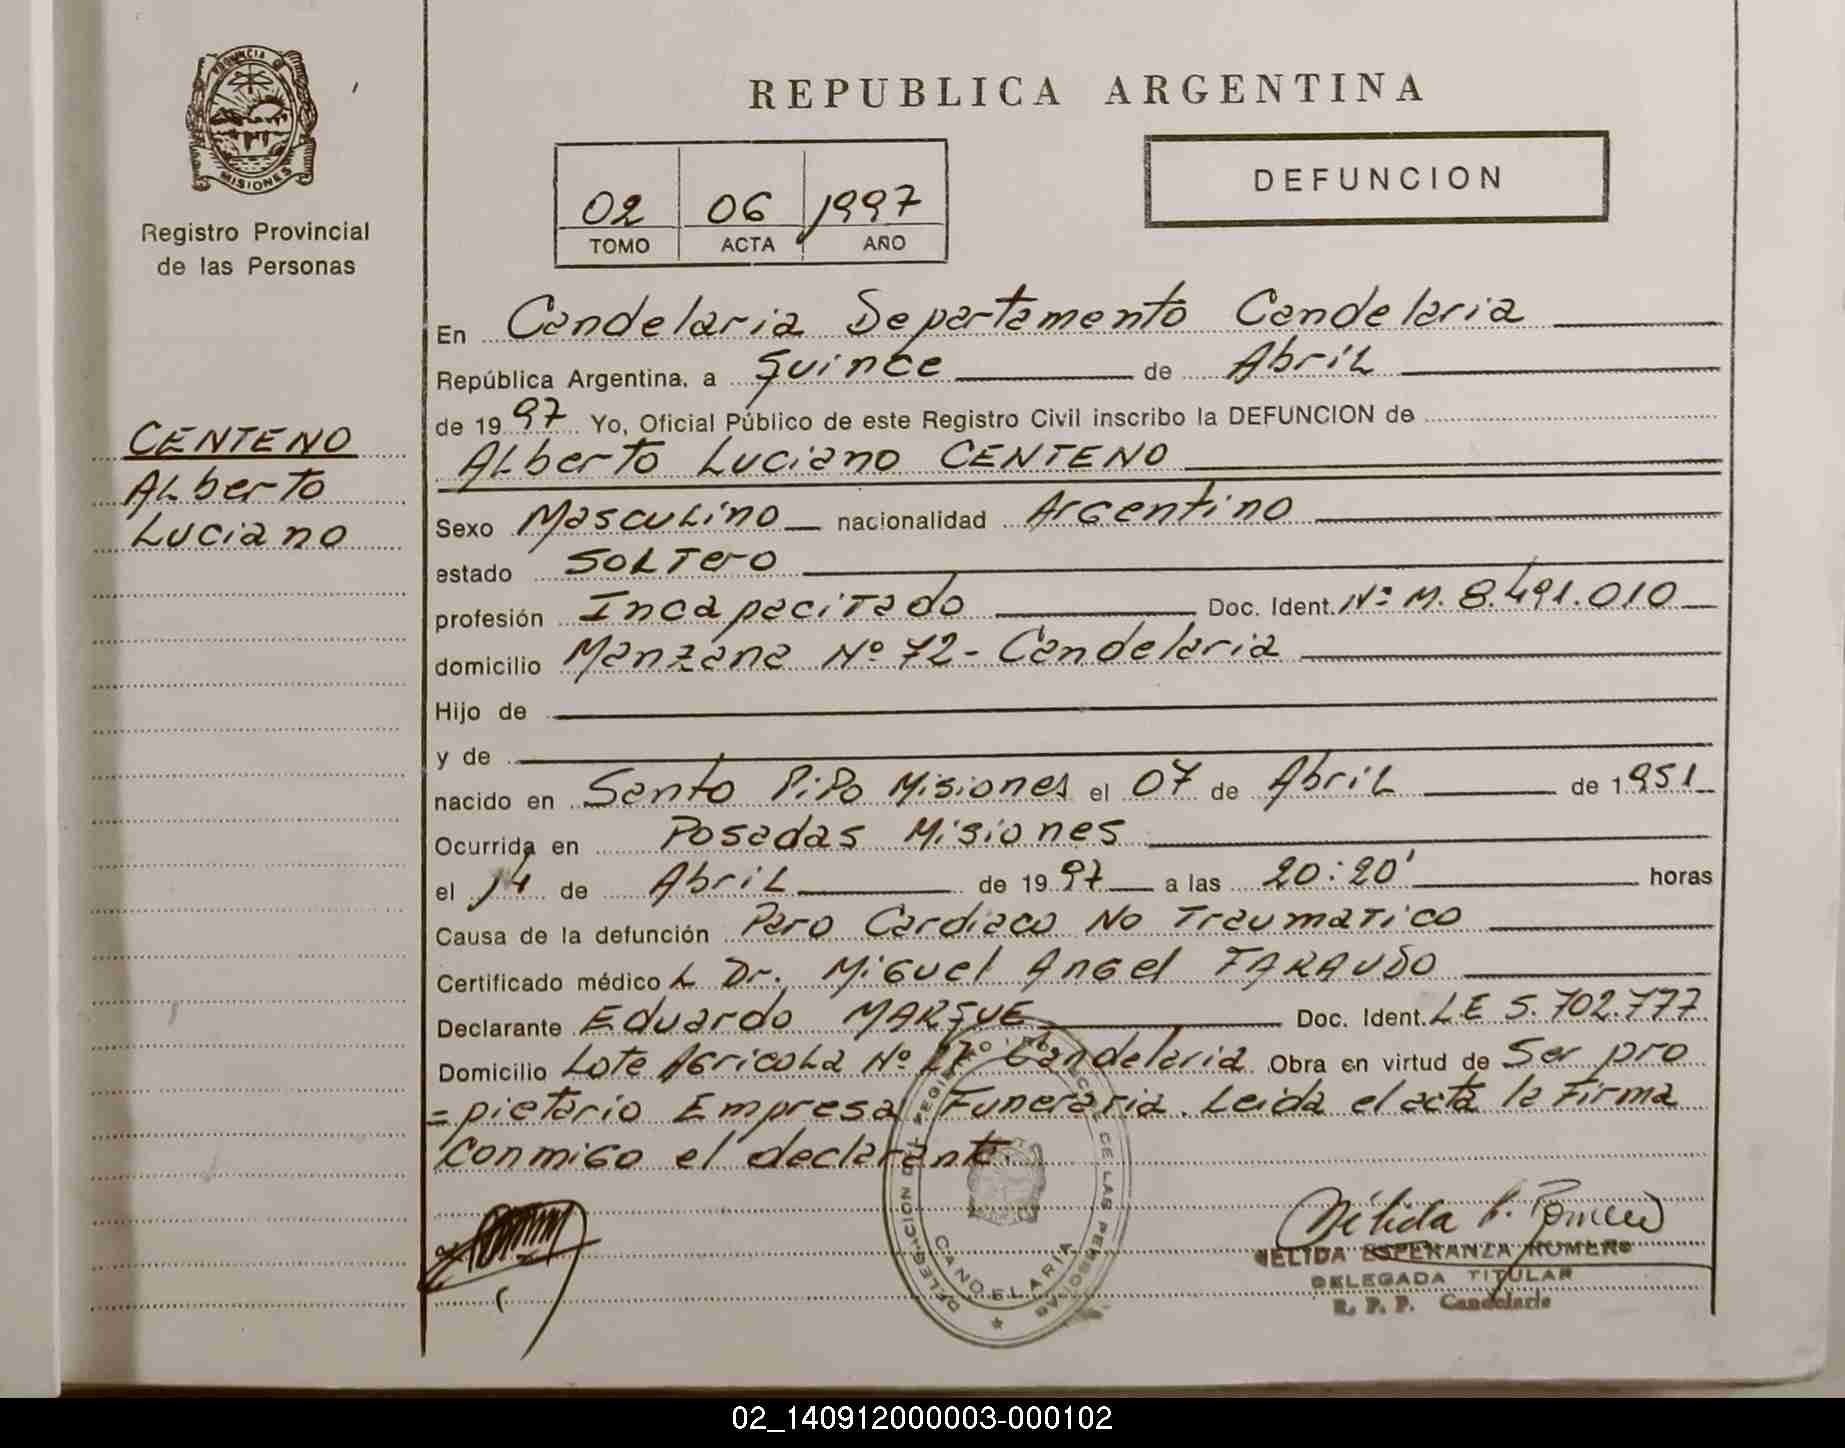 PROVINCIA D
MISIONES
Registro Provincial
de las Personas
CENTENO
Alberto
Luciano
REPUBLICA ARGENTINA
02 06 1997
TOMO ACTA AÑO
DEFUNCION
En Candelaria Departamento Candelaria
República Argentina, a quince de Abril
de 1997 Yo, Oficial Público de este Registro Civil inscribo la DEFUNCION de
Alberto Luciano CENTENO
Sexo Masculino nacionalidad Argentino
estado Soltero
profesión Incapacitado Doc. Ident. Nº M. 8.491.010
domicilio Manzana Nº 72 - Candelaria
Hijo de
y de
nacido en Santo Pipo Misiones el 07 de Abril de 1951
Ocurrida en Posadas Misiones
el 14 de Abril de 1997 a las 20:20' horas
Causa de la defunción Paro Cardiaco No Traumatico
Certificado médico L Dr. Miguel Angel FARAUDO
Declarante Eduardo MARQUE Doc. Ident. L.E 5.702.777
Domicilio Lote Agricola Nº 27º Candelaria Obra en virtud de Ser pro
=pietario Empresa Funeraria. Leida el acta la Firma
conmigo el declarante.
DELEGACION DEL REGISTRO DE LAS PERSONAS
CANDELARIA
NELIDA ESPERANZA ROMERO
DELEGADA TITULAR
R. P. P. Candelaria
02_140912000003-000102